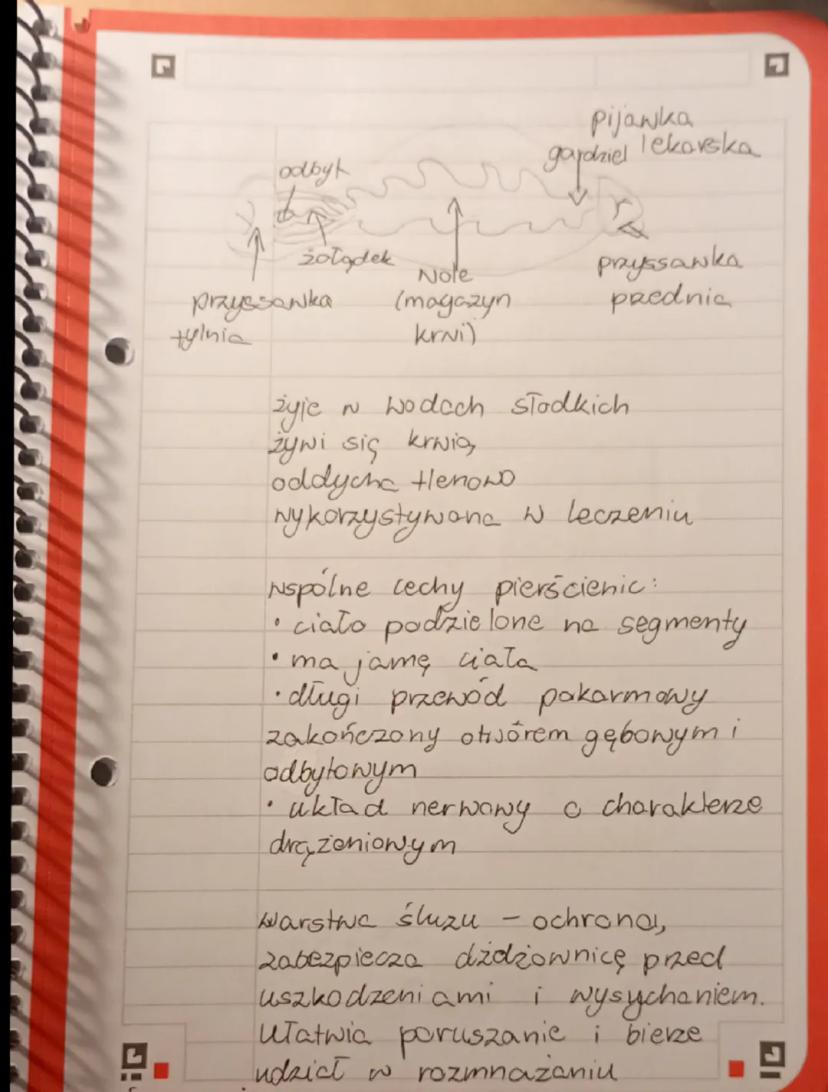 pijawka
lekarska
gardziel
odbyt
żołądek
Wole
(magazyn
krwi)
przyssawka
przednia
przyssawka
tylnia
żyje w wodach słodkich
żywi się krwią,
oddycha tlenowo
wykorzystywana w leczeniu
wspólne cechy pierścienic:
• ciało podzielone na segmenty
• ma jamę ciała
• długi przewód pokarmowy
zakończony otworem gębowym i
odbytowym
• układ nerwowy o charakterze
drążeniowym
warstwa śluzu – ochrona,
zabezpiecza dżdżownicę przed
uszkodzeniami i wysychaniem.
Ułatwia poruszanie i bierze
udział w rozmnażaniu